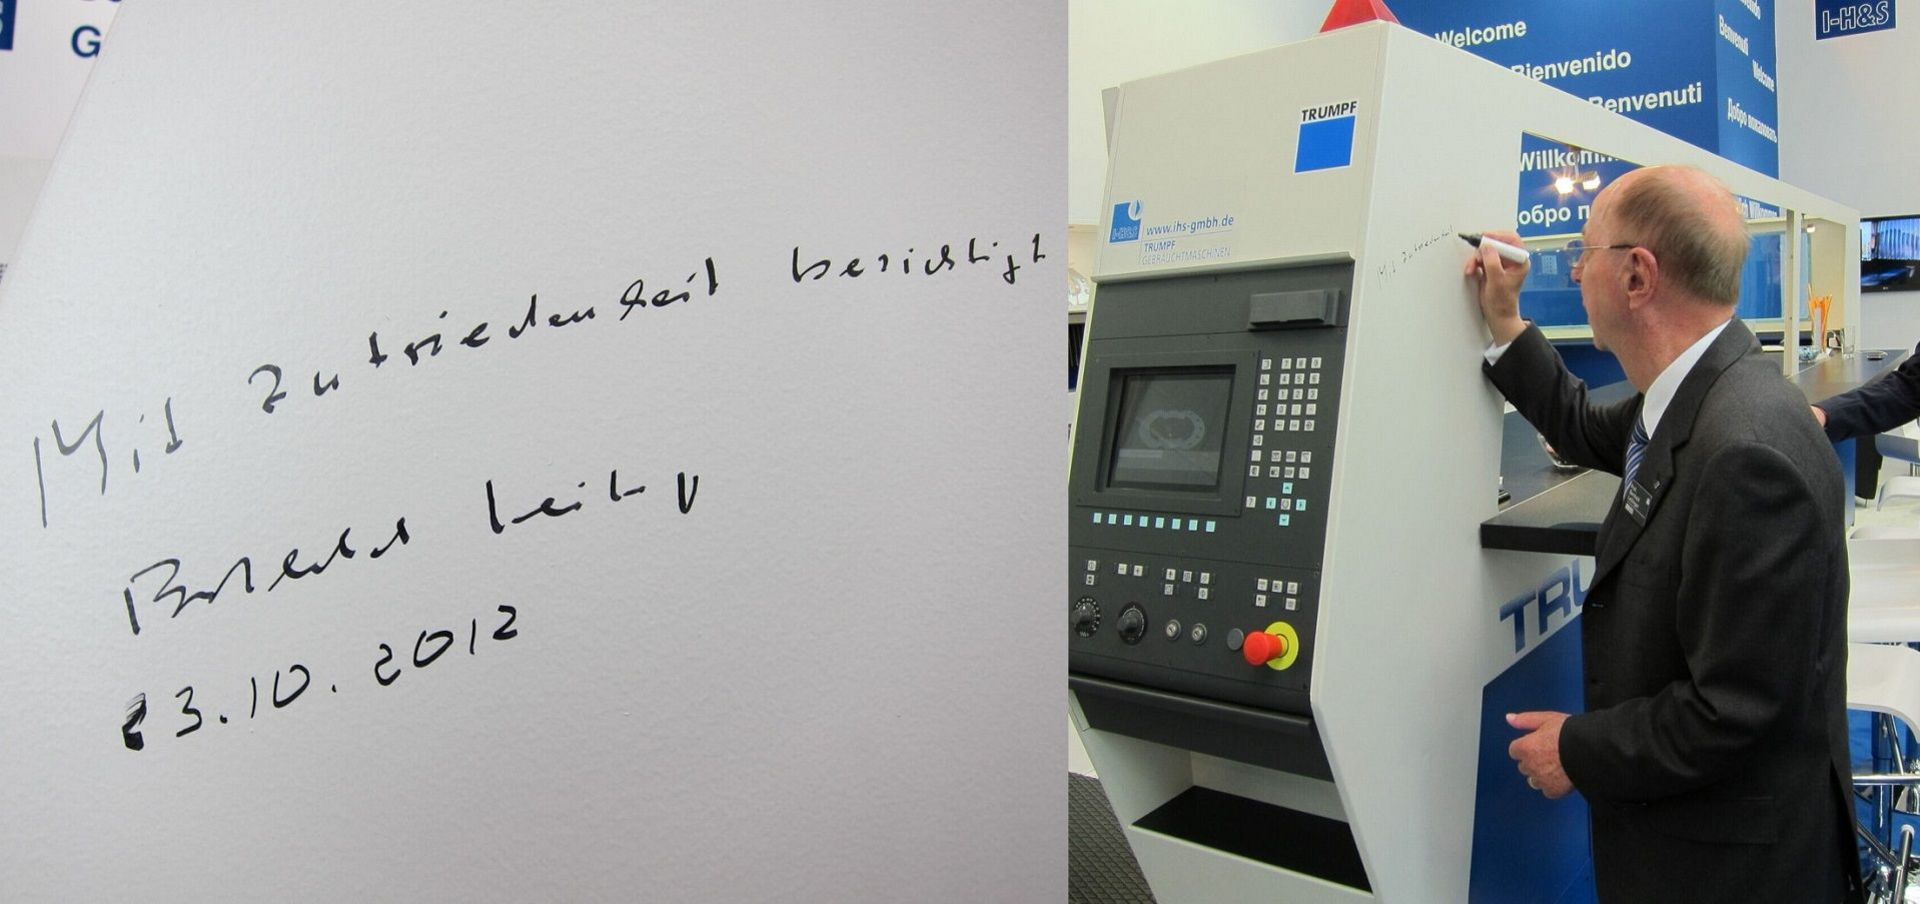 G
Mit Zufriedenheit besichtigt
23.10.2012
I-H&S
Welcome
Bienvenido
Benvenuti
Willkomm
обро п
Benvenuti
Welcome
Добро пожаловать
TRUMPF
I-H&S
www.ihs-gmbh.de
TRUMPF
GEBRAUCHTMASCHINEN
Mit Zufriedenheit
TRU